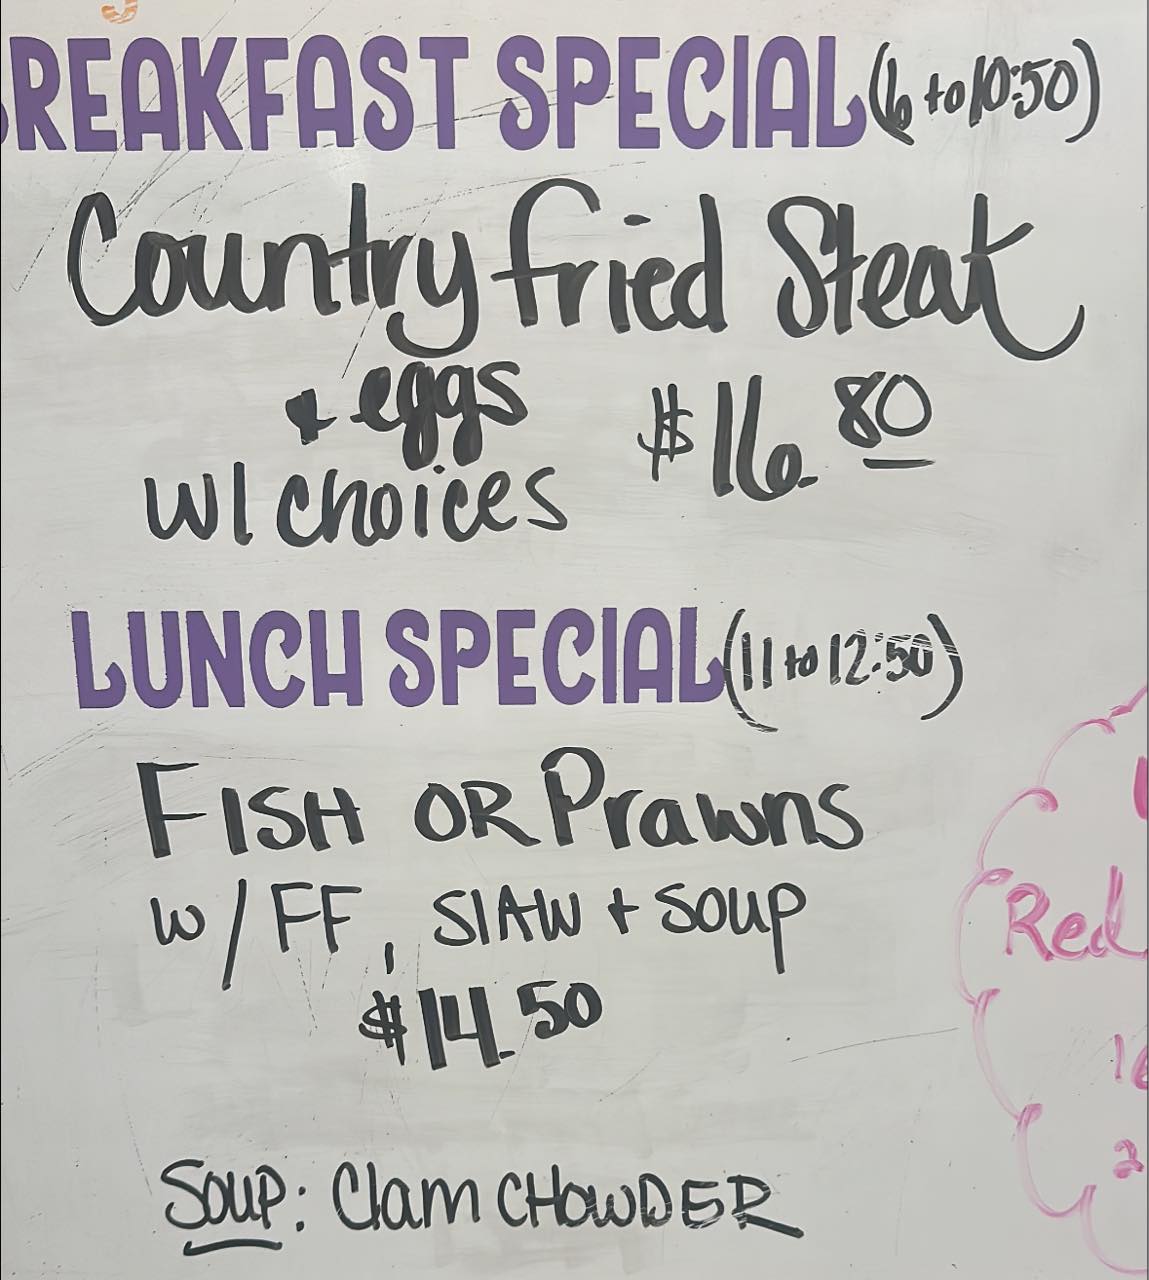 BREAKFAST SPECIAL (6 to 10:50)
Country fried Steak
& eggs $16.80
w/ choices
LUNCH SPECIAL (11 to 12:50)
FISH OR Prawns
w/ FF, SlAW + Soup
$14.50
Red
Soup: Clam CHOWDER